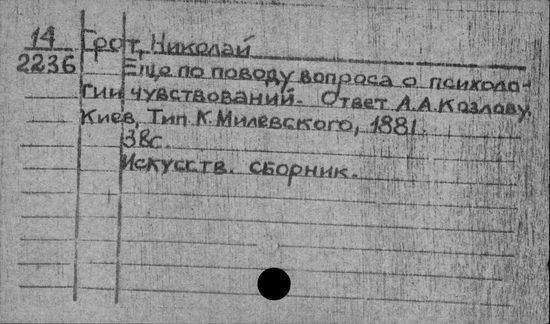 14
2236
Грот, Николай
Еще по поводу вопроса о психоло-
гии чувствований. Ответ А.А.Козлову.
Киев, Тип. К.Милевского, 1881.
38с.
Искусств. сборник.